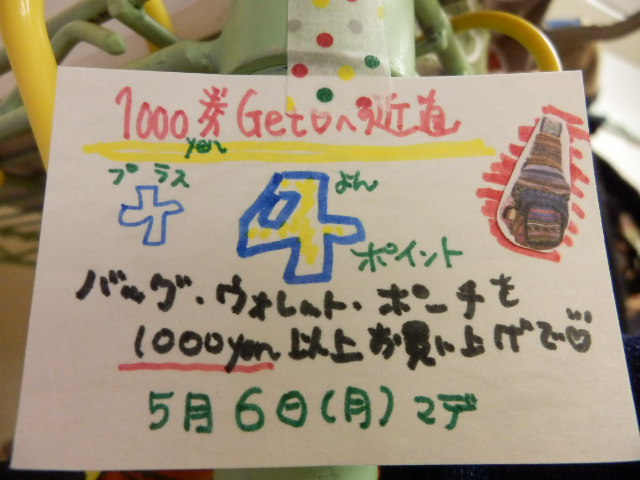 1000yen券Getへ近道
プラス
+
4
よん
ポイント
バッグ・ウォレット・ポーチを
1000yen以上お買い上げで♡
5月6日(月)マデ